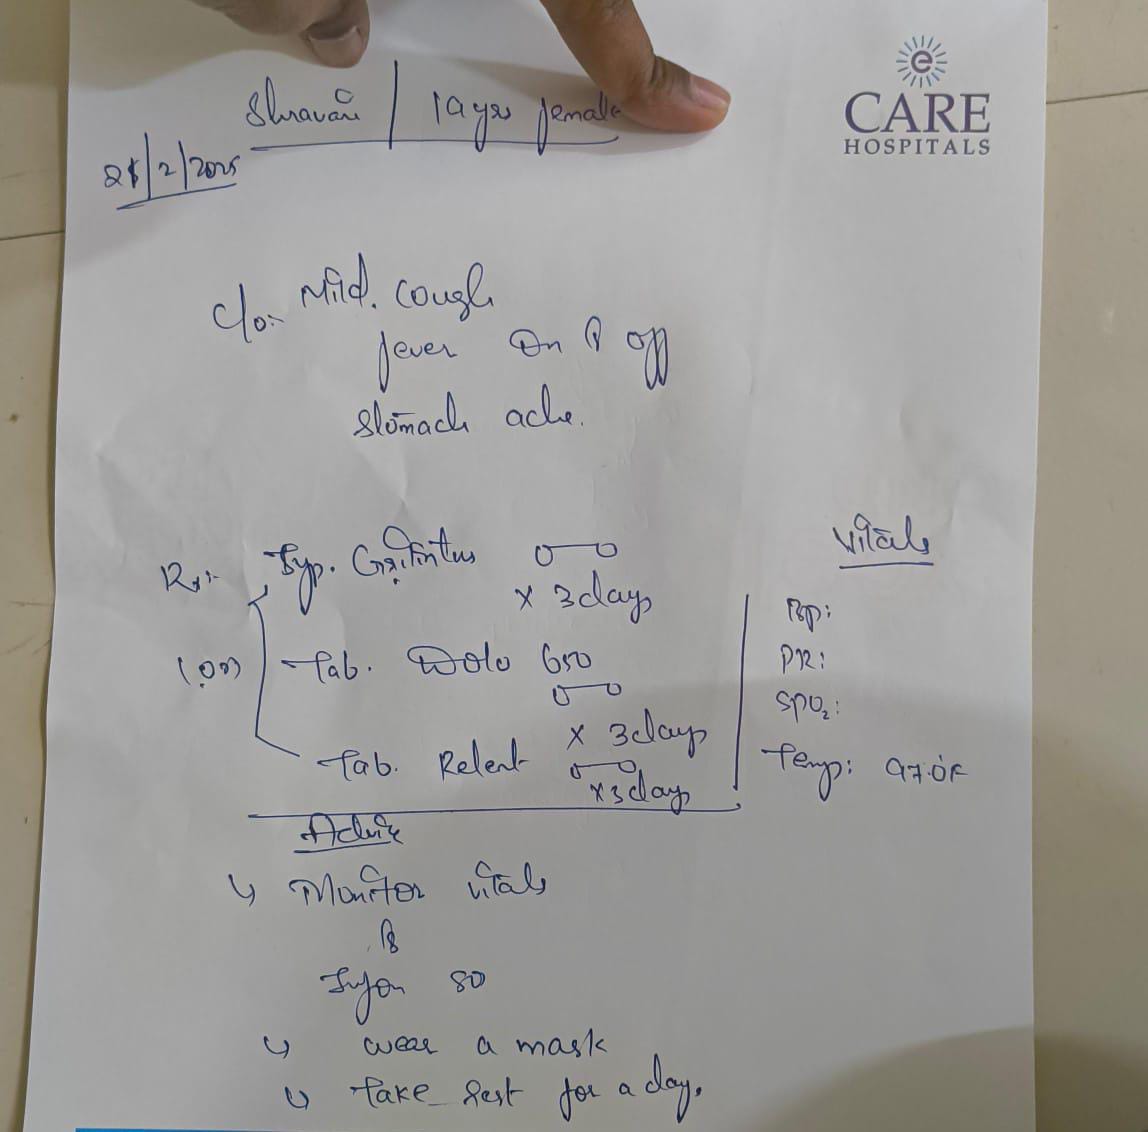 Shravani | 19 yrs female
e
CARE
HOSPITALS
28/2/2025
c/o:- Mild. cough
fever on & off
stomach ache.
Rx:- Syp. Grilintus o—o
x 3 days
(or) Tab. Dolo 650
o—o
x 3 days
Tab. Relent o—o
x 3 days
Vitals
BP:
PR:
SPO2:
Temp: 97.0F
Advice
↳ Monitor vitals
&
Infor SO
↳ wear a mask
↳ Take rest for a day.